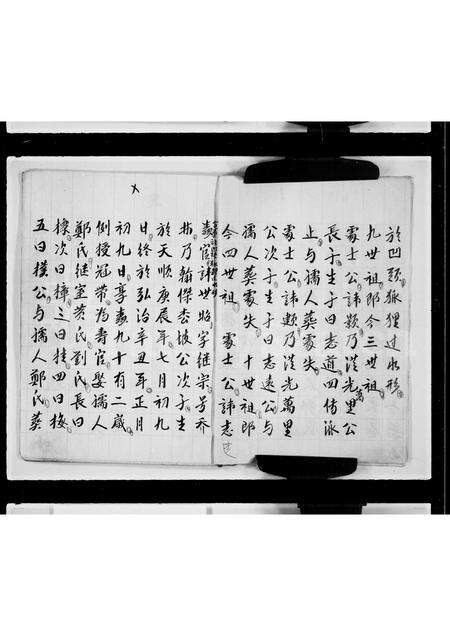 於凹頸狐狸过水形
九世祖郎今三世祖
處士公諱顯乃漢光里公
萬
長子生于曰志道四傳泳
止与孺人葬處失
處士公諱顯乃漢光萬里
公次子生于曰志遠公与
孺人葬處失 十世祖郎
今四世祖 處士公諱志
遠
壽官諱世
字継宗号乔
乃翰傑
公次子生
於天順庚辰年七月初九
日終於弘治辛丑年正月
初九日享壽九十有二歲
例授冠带为壽官娶孺人
鄭氏継室黄氏刘氏長曰
棟次曰樟三曰桂四曰梅
五曰樸公与孺人鄭氏葬